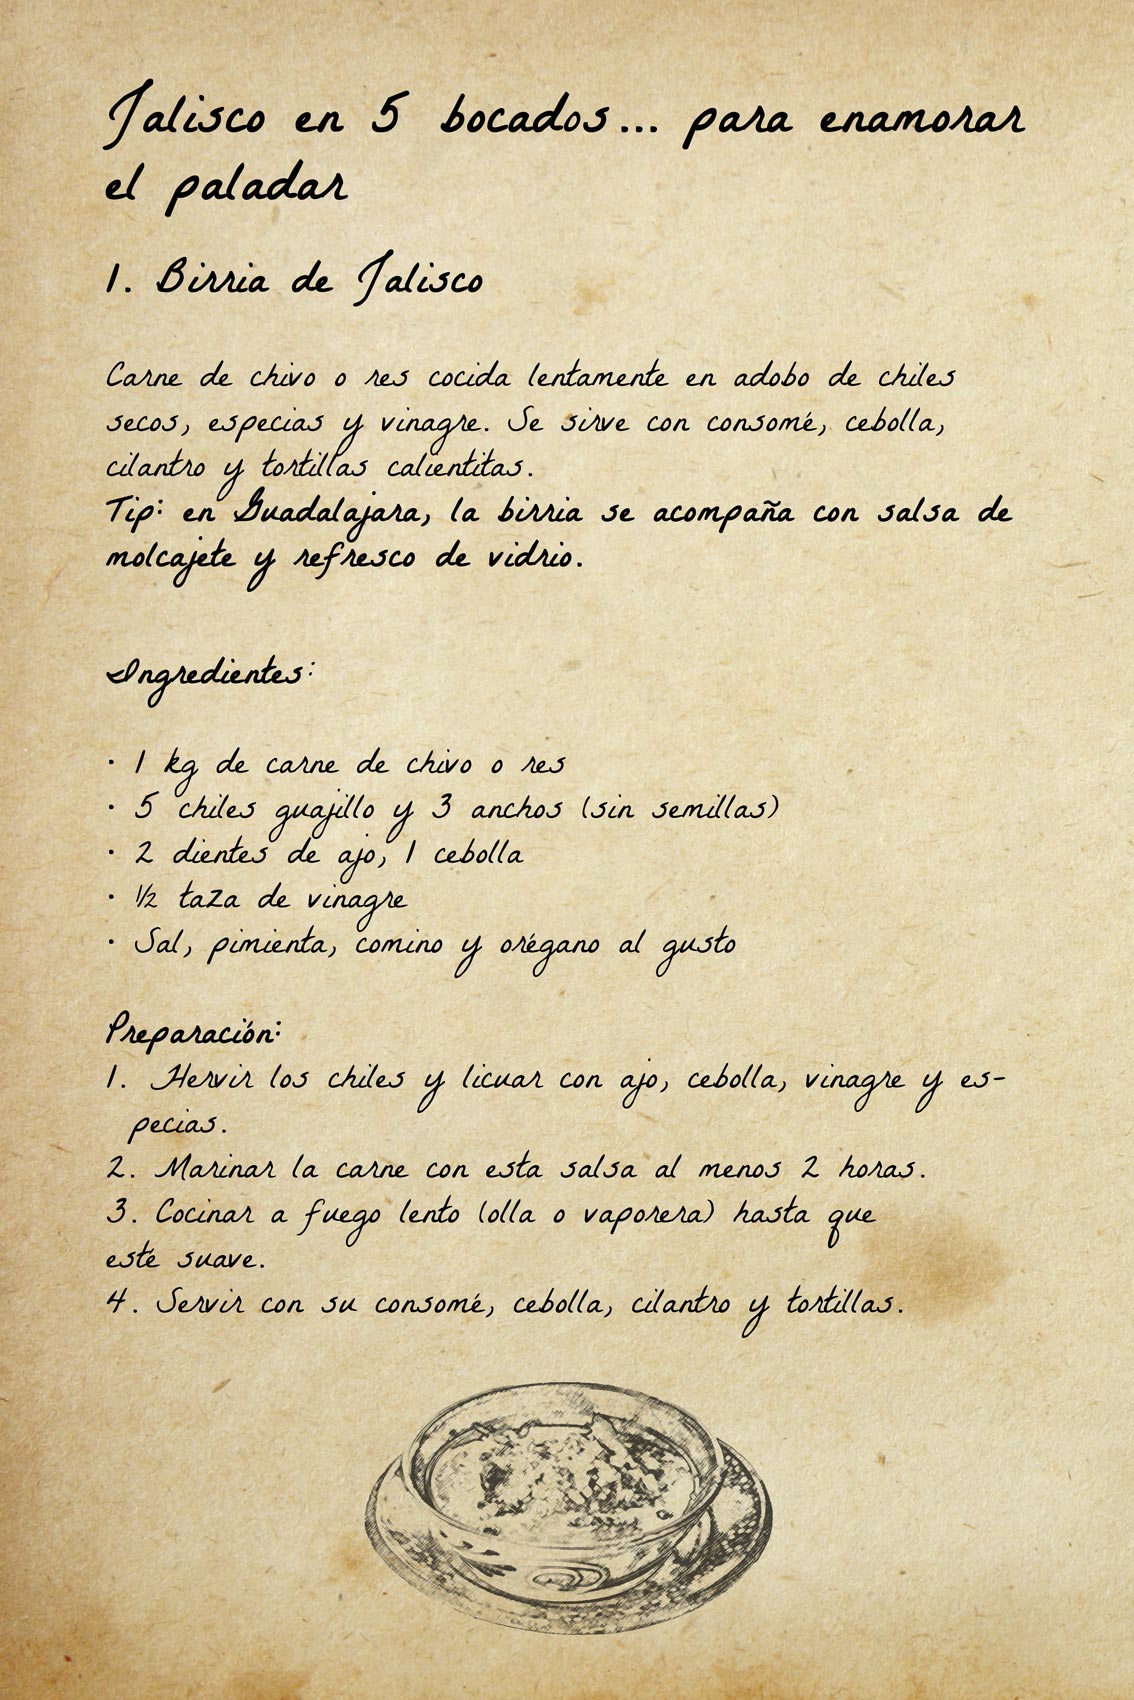 Jalisco en 5 bocados... para enamorar
el paladar
1. Birria de Jalisco
Carne de chivo o res cocida lentamente en adobo de chiles
secos, especias y vinagre. Se sirve con consomé, cebolla,
cilantro y tortillas calientitas.
Tip: en Guadalajara, la birria se acompaña con salsa de
molcajete y refresco de vidrio.
Ingredientes:
• 1 kg de carne de chivo o res
• 5 chiles guajillo y 3 anchos (sin semillas)
• 2 dientes de ajo, 1 cebolla
• ½ taza de vinagre
• Sal, pimienta, comino y orégano al gusto
Preparación:
1. Hervir los chiles y licuar con ajo, cebolla, vinagre y es-
pecias.
2. Marinar la carne con esta salsa al menos 2 horas.
3. Cocinar a fuego lento (olla o vaporera) hasta que
esté suave.
4. Servir con su consomé, cebolla, cilantro y tortillas.